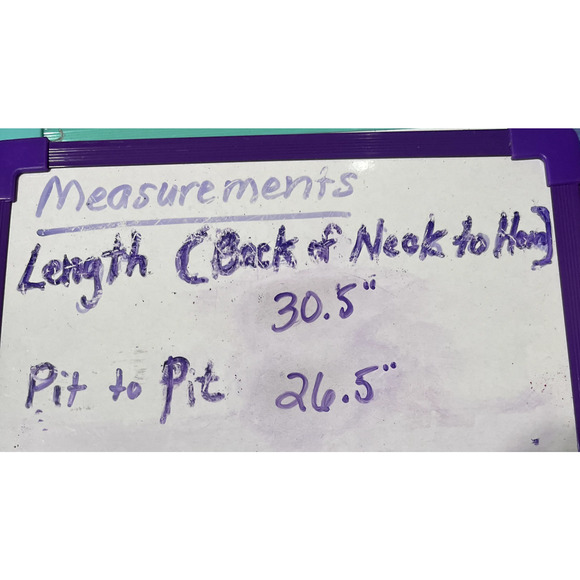 Measurements
Length (Back of Neck to Hem]
30.5"
Pit to Pit 26.5"